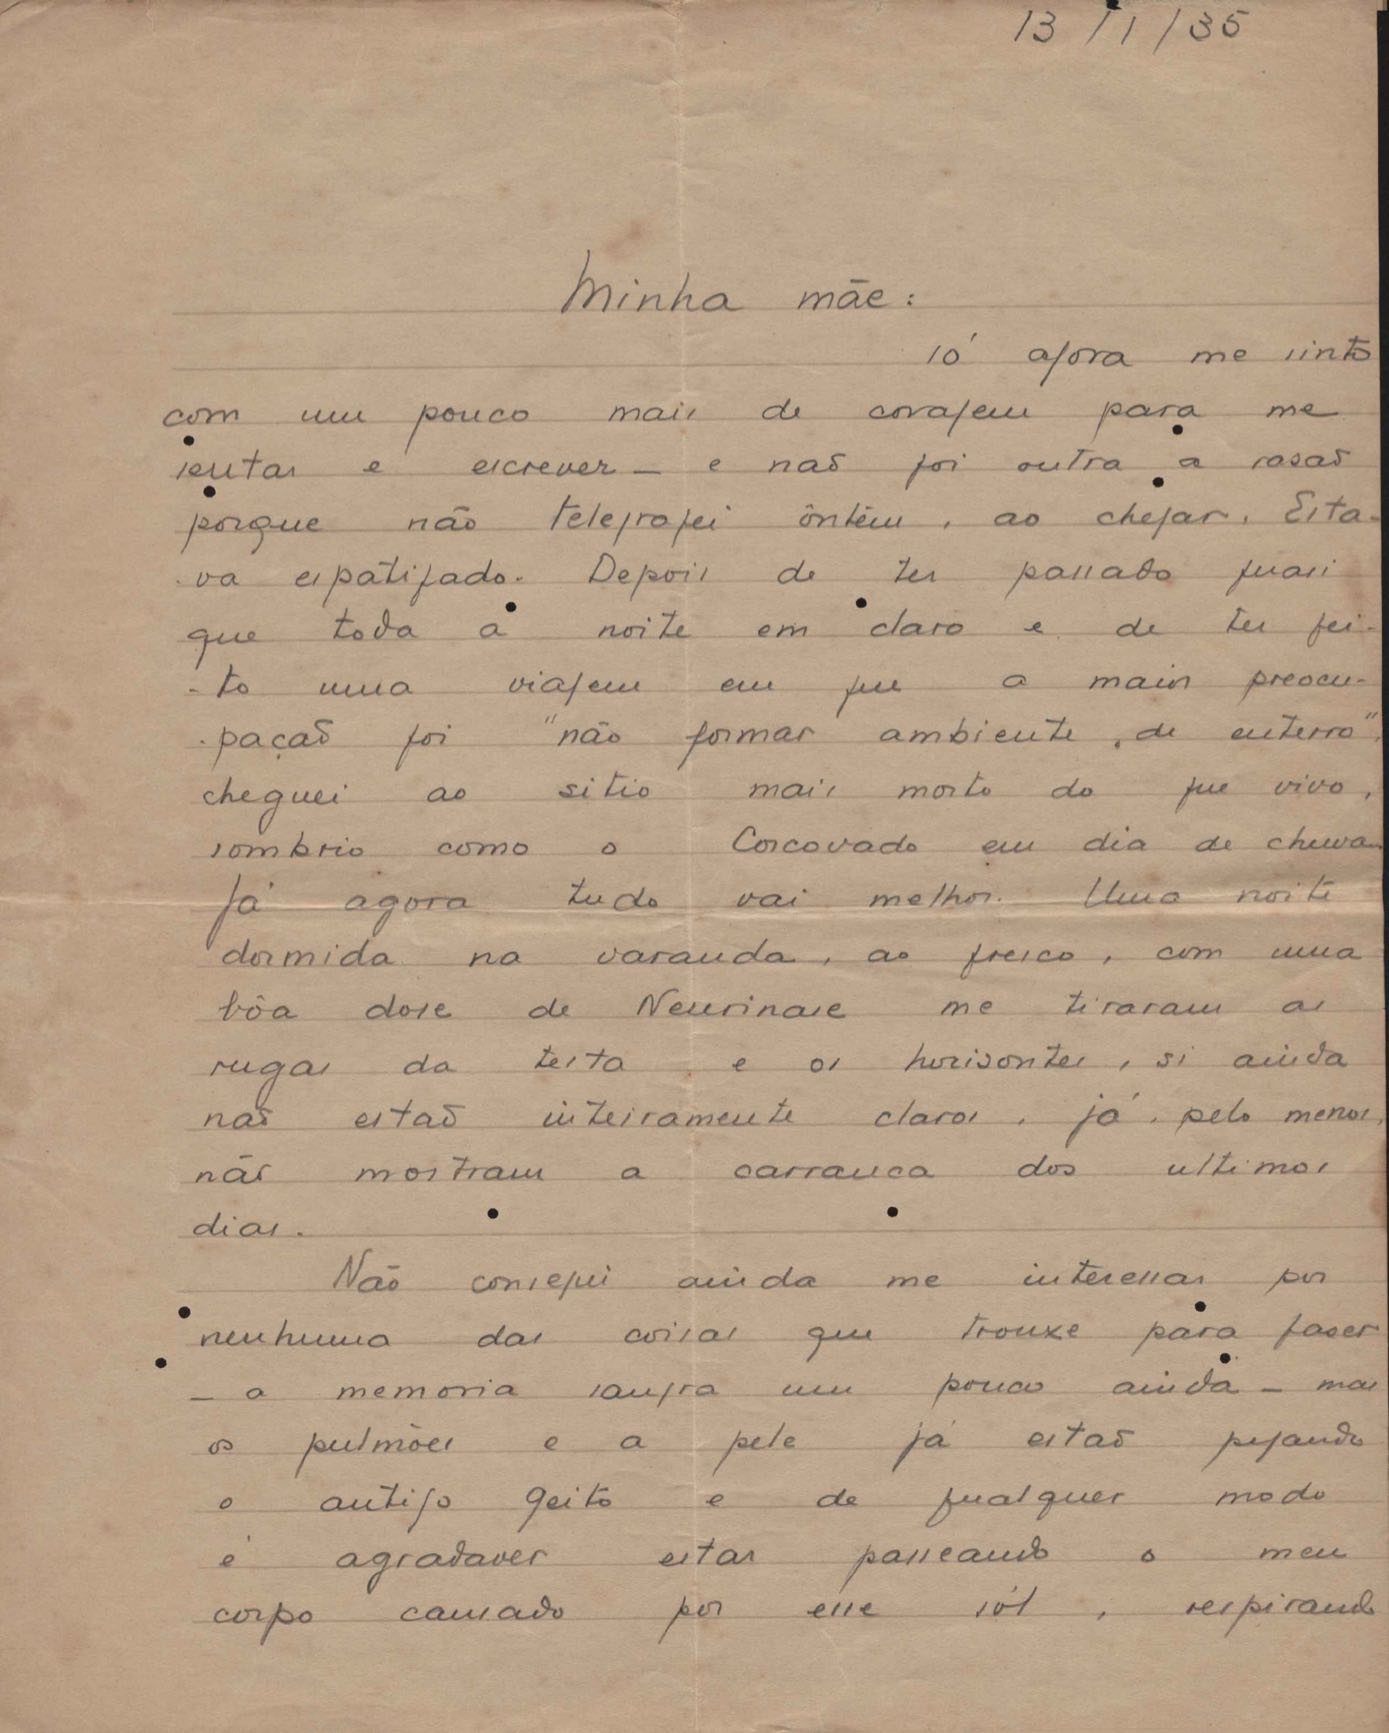 13/1/35
Minha mãe:
só agora me sinto
com um pouco mais de coragem para me
sentar e escrever — e não foi outra a rasão
porque não telegrafei ôntêm, ao chegar. Esta-
va espatifado. Depois de ter passado quasi
que toda a noite em claro e de ter fei-
-to uma viagem em que a maior preocu-
-pação foi "não formar ambiente de enterro",
cheguei ao sitio mais morto do que vivo,
sombrio como o Corcovado em dia de chuva.
Já agora tudo vai melhor. Uma noite
dormida na varanda, ao fresco, com uma
bôa dose de Neurinase me tiraram as
rugas da testa e os horisontes, si ainda
não estão inteiramente claros, já, pelo menos,
não mostram a carranca dos ultimos
dias.
Não consegui ainda me interessar por
nenhuma das coisas que trouxe para faser
— a memoria sangra um pouco ainda — mas
os pulmões e a pele já estão pegando
o antigo geito e de qualquer modo
é agradavel estar passeando o meu
corpo cansado por esse sól, respirando